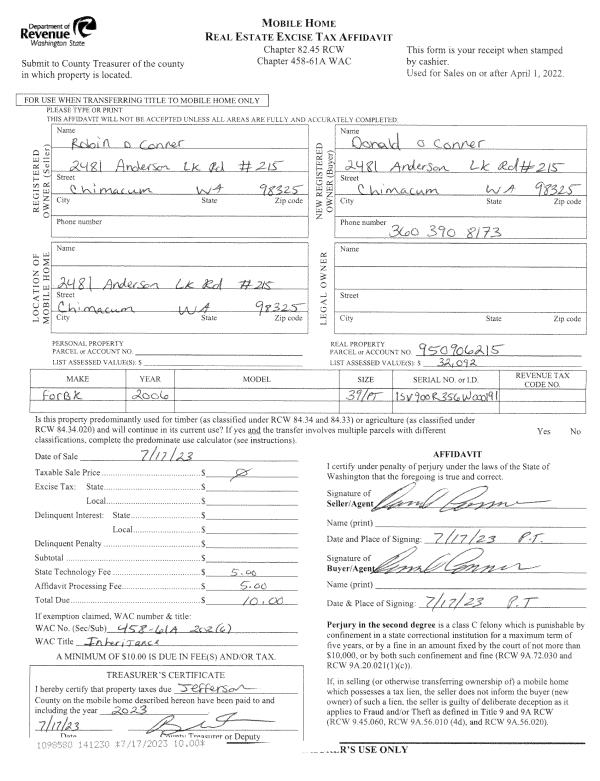 Department of
Revenue
Washington State
MOBILE HOME
REAL ESTATE EXCISE TAX AFFIDAVIT
Chapter 82.45 RCW
Chapter 458-61A WAC
Submit to County Treasurer of the county
in which property is located.
This form is your receipt when stamped
by cashier.
Used for Sales on or after April 1, 2022.
FOR USE WHEN TRANSFERRING TITLE TO MOBILE HOME ONLY
PLEASE TYPE OR PRINT
THIS AFFIDAVIT WILL NOT BE ACCEPTED UNLESS ALL AREAS ARE FULLY AND ACCURATELY COMPLETED.
REGISTERED
OWNER (Seller)
Name
Robin O Conner
2481 Anderson Lk Rd #215
Street
Chimacum WA 98325
City State Zip code
Phone number
NEW REGISTERED
OWNER (Buyer)
Name
Donald O Conner
2481 Anderson Lk Rd #215
Street
Chimacum WA 98325
City State Zip code
Phone number
360 390 8173
LOCATION OF
MOBILE HOME
Name
2481 Anderson Lk Rd #215
Street
Chimacum WA 98325
City State Zip code
LEGAL OWNER
Name
Street
City State Zip code
PERSONAL PROPERTY
PARCEL or ACCOUNT NO.
LIST ASSESSED VALUE(S): $
REAL PROPERTY
PARCEL or ACCOUNT NO. 950906215
LIST ASSESSED VALUE(S): $ 32,092
MAKE YEAR MODEL SIZE SERIAL NO. or I.D. REVENUE TAX CODE NO.
ForBK 2006 39/PT 1SV900R356W000191
Is this property predominantly used for timber (as classified under RCW 84.34 and 84.33) or agriculture (as classified under
RCW 84.34.020) and will continue in its current use? If yes and the transfer involves multiple parcels with different
classifications, complete the predominate use calculator (see instructions).
Yes No
Date of Sale 7/17/23
Taxable Sale Price $ Ø
Excise Tax: State $
Local $
Delinquent Interest: State $
Local $
Delinquent Penalty $
Subtotal $
State Technology Fee $ 5.00
Affidavit Processing Fee $ 5.00
Total Due $ 10.00
If exemption claimed, WAC number & title:
WAC No. (Sec/Sub) 458-61A 202(6)
WAC Title Inheritance
A MINIMUM OF $10.00 IS DUE IN FEE(S) AND/OR TAX.
TREASURER'S CERTIFICATE
I hereby certify that property taxes due Jefferson
County on the mobile home described hereon have been paid to and
including the year 2023
7/17/23
Date County Treasurer or Deputy
1098580 141230 *7/17/2023 10.00*
AFFIDAVIT
I certify under penalty of perjury under the laws of the State of
Washington that the foregoing is true and correct.
Signature of
Seller/Agent
Name (print)
Date and Place of Signing: 7/17/23 P.T.
Signature of
Buyer/Agent
Name (print)
Date & Place of Signing: 7/17/23 P.T
Perjury in the second degree is a class C felony which is punishable by
confinement in a state correctional institution for a maximum term of
five years, or by a fine in an amount fixed by the court of not more than
$10,000, or by both such confinement and fine (RCW 9A.72.030 and
RCW 9A.20.021(1)(c)).
If, in selling (or otherwise transferring ownership of) a mobile home
which possesses a tax lien, the seller does not inform the buyer (new
owner) of such a lien, the seller is guilty of deliberate deception as it
applies to Fraud and/or Theft as defined in Title 9 and 9A RCW
(RCW 9.45.060, RCW 9A.56.010 (4d), and RCW 9A.56.020).
R'S USE ONLY